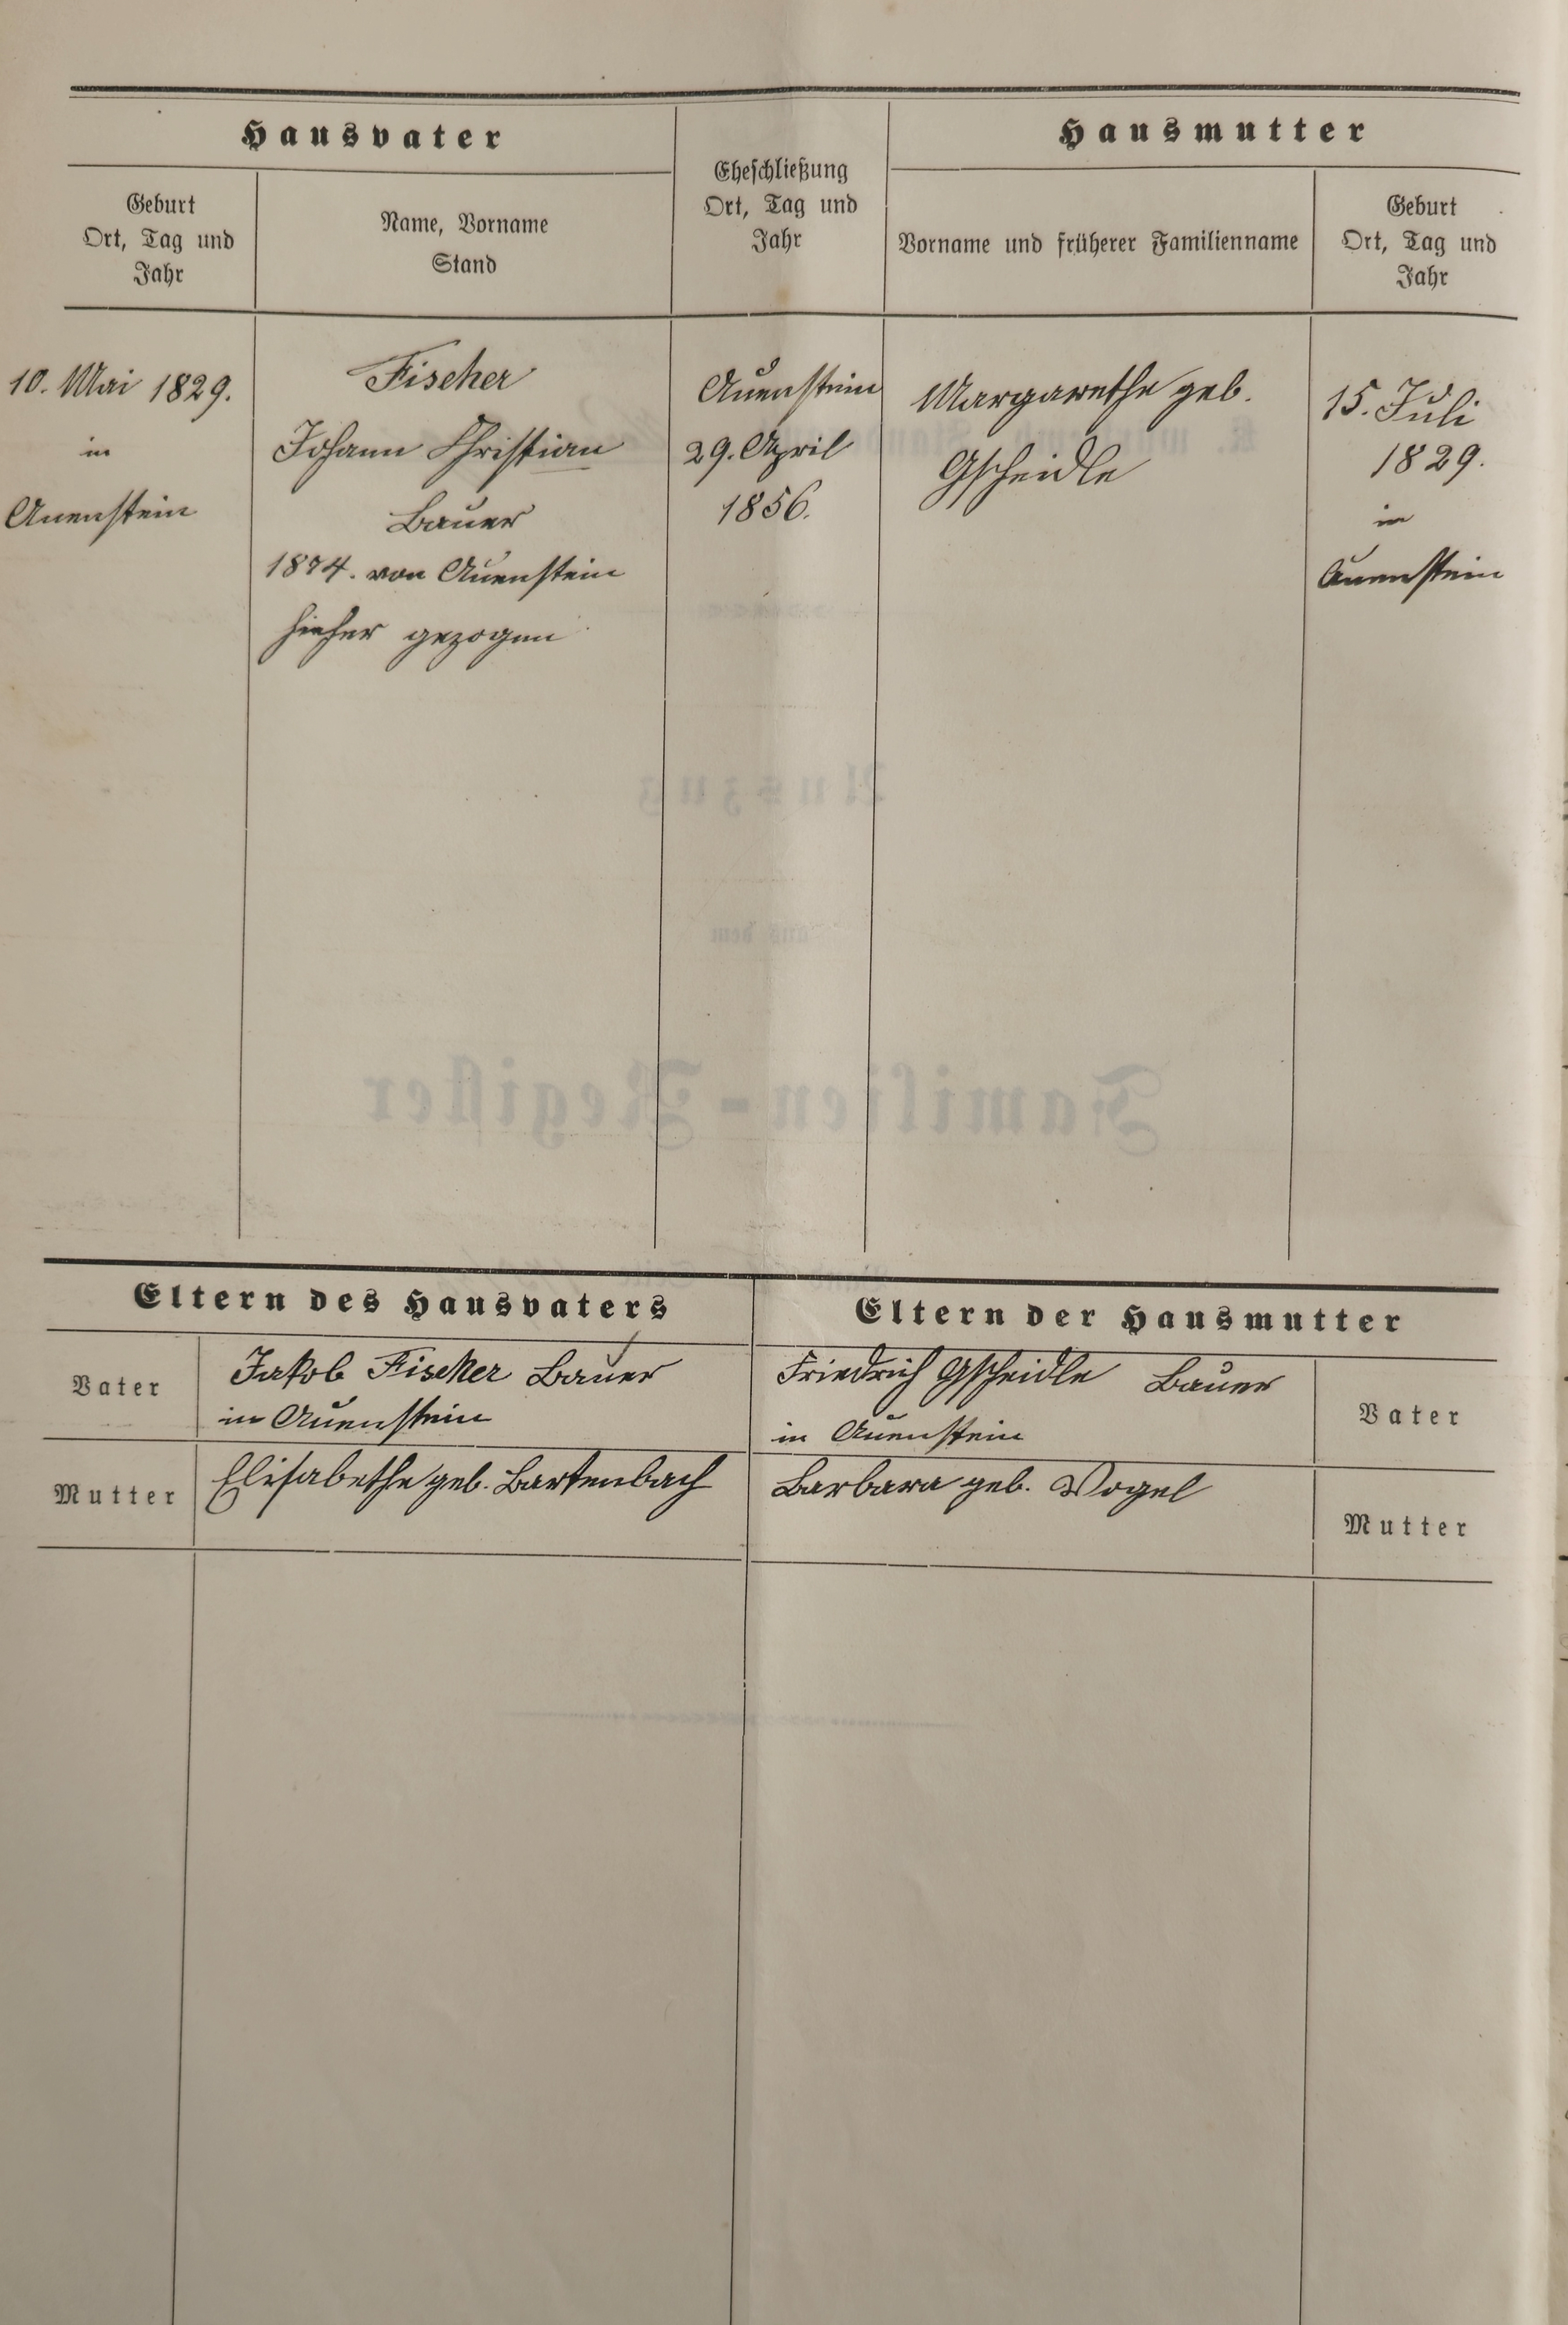 Hausvater
Eheschließung
Ort, Tag und
Jahr
Hausmutter
Geburt
Ort, Tag und
Jahr
Name, Vorname
Stand
Vorname und früherer Familienname
Geburt
Ort, Tag und
Jahr
10. Mai 1829.
in
Auenstein
Fischer
Johann Christian
Bauer
1874. von Auenstein
hieher gezogen
Auenstein
29. April
1856.
Margarethe geb.
Gscheidle
15. Juli
1829.
in
Auenstein
Auszug
aus dem
Familien-Register
Eltern des Hausvaters
Eltern der Hausmutter
Vater
Jakob Fischer Bauer
in Auenstein
Friedrich Gscheidle Bauer
in Auenstein
Vater
Mutter
Elisabethe geb. Bartenbach
Barbara geb. Vogel
Mutter